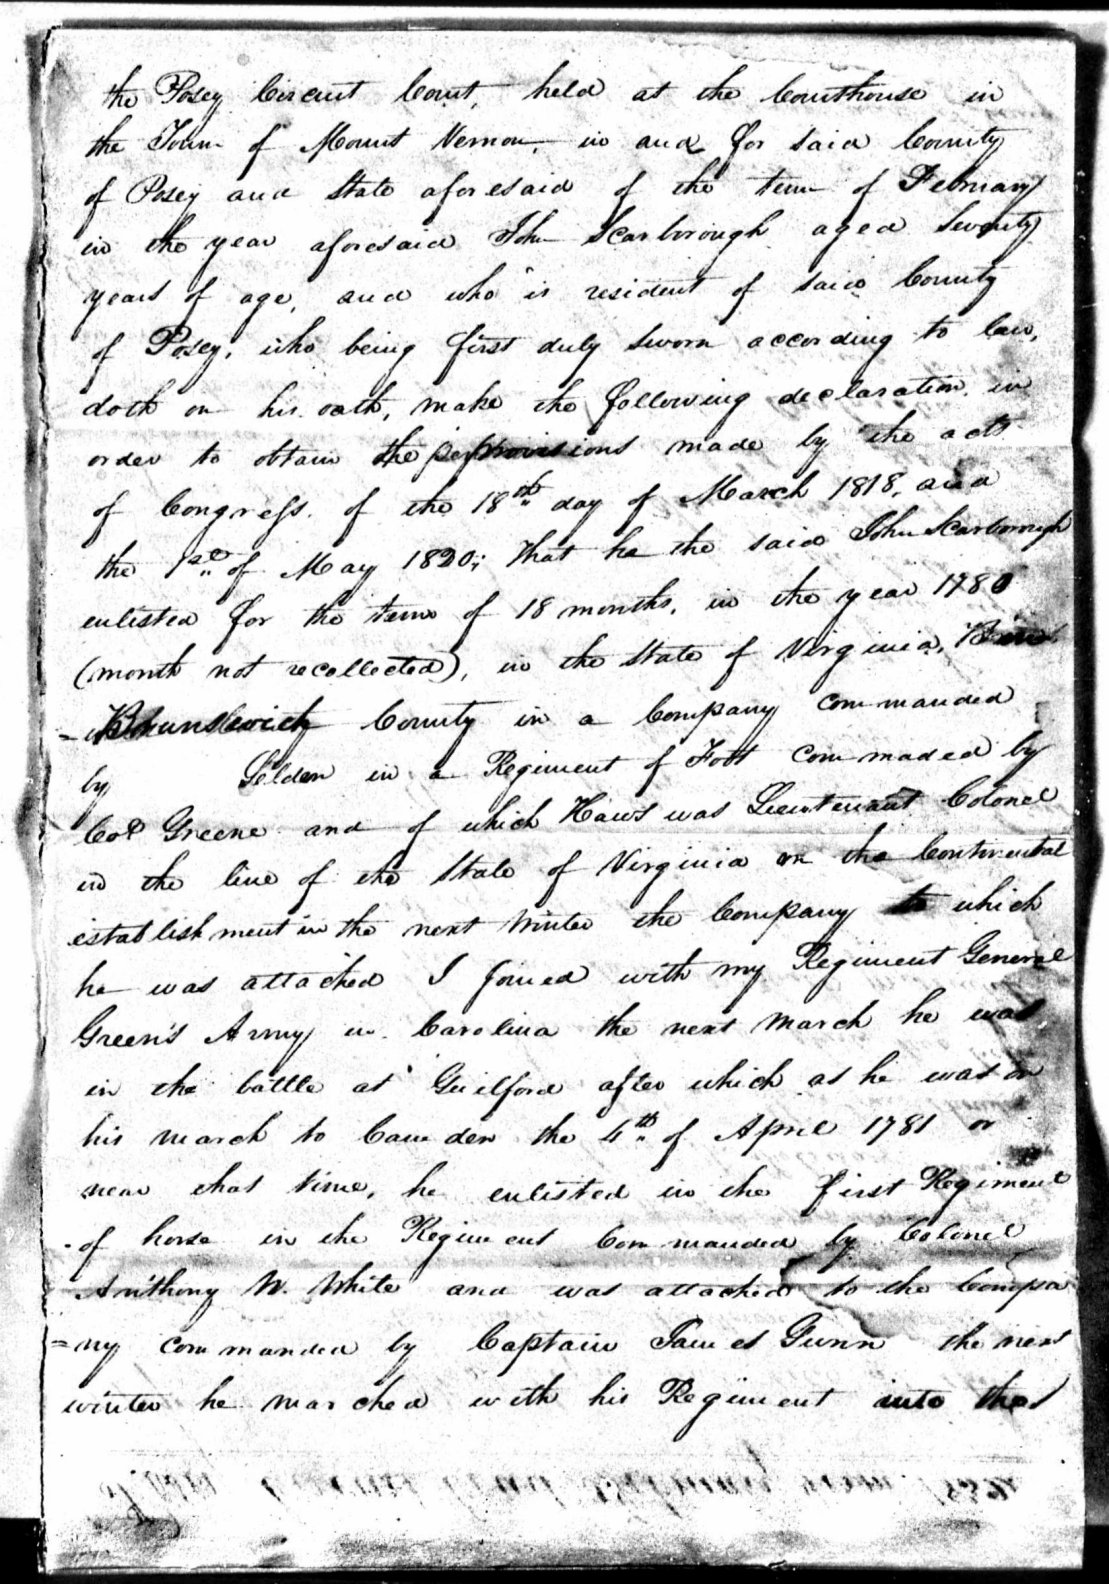 the Posey Circuit Court, held at the Courthouse in
the Town of Mount Vernon, in and for said County
of Posey and State aforesaid of the term of February
in the year aforesaid John Scarborough aged Seventy
years of age, and who is resident of said County
of Posey, who being first duly sworn according to law,
doth on his oath, make the following declaration, in
order to obtain the provisions made by the acts
of Congress. of the 18th day of March 1818, and
the 1st of May 1820; that he the said John Scarborough
enlisted for the term of 18 months, in the year 1780
(month not recollected), in the State of Virginia,
Brunswick County in a Company commanded
by Selden in a Regiment of Foot commaded by
Col Greene and of which Haws was Lieutenant Colonel
in the line of the State of Virginia on the Continental
establishment in the next Winter the Company to which
he was attached I joined with my Regiment General
Green's Army in Carolina the next March he was
in the battle at Guilford after which as he was on
his march to Camden the 4th of April 1781 or
near that time, he enlisted in the first Regiment
of horse in the Regiment Commanded by Colonel
Anthony W. White and was attached to the Compa
=ny commanded by Captain James Gunn the next
winter he marched with his Regiment into the